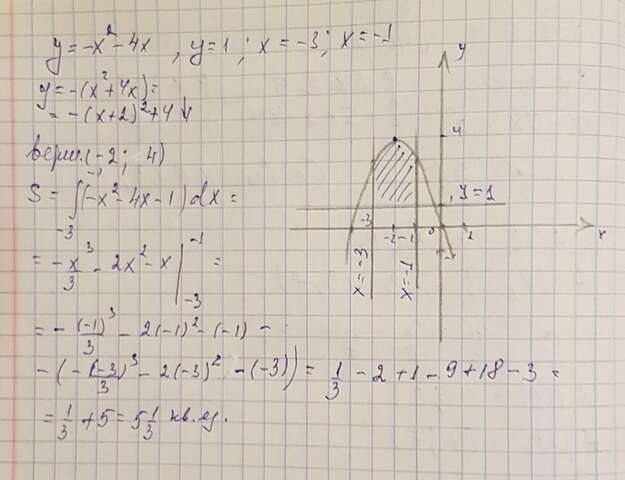 y = -x² - 4x , y = 1 ; x = -3 ; x = -1
y = -(x² + 4x) =
= -(x + 2)² + 4 ↓
верш. (-2; 4)
S = ∫₋₃⁻¹ (-x² - 4x - 1) dx =
= -x³/3 - 2x² - x |₋₃⁻¹ =
= - (-1)³/3 - 2(-1)² - (-1) -
- (- (-3)³/3 - 2(-3)² - (-3)) = 1/3 - 2 + 1 - 9 + 18 - 3 =
= 1/3 + 5 = 5 1/3 кв. ед.
y
4
y = 1
-3 -2 -1 0 1 x
x = -3
x = -1